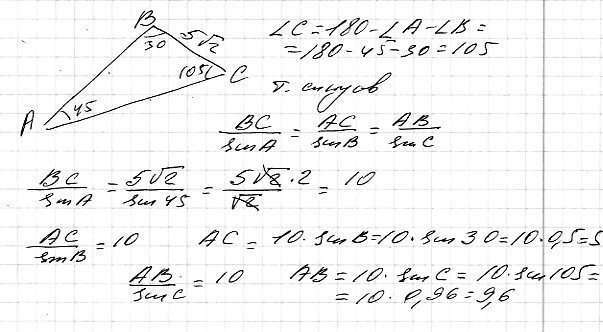 B
30
5√2
105
C
A
45
∠C=180-∠A-∠B=
=180-45-30=105
т. синусов
BC/sinA = AC/sinB = AB/sinC
BC/sinA = 5√2/sin 45 = 5√2·2/√2 = 10
AC/sinB = 10 AC = 10·sinB=10·sin30=10·0,5=5
AB/sinC = 10 AB=10·sinC=10·sin105=
=10·0,96=9,6